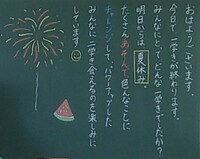 おはようございます。
今日で一学きが終わります。
みんなにとって、どんな一学きでしたか？
明日からは夏休み。
たくさんあそんで色んなことに
チャレンジして、パワーアップした
みんなに二学き会えるのを楽しみに
しています